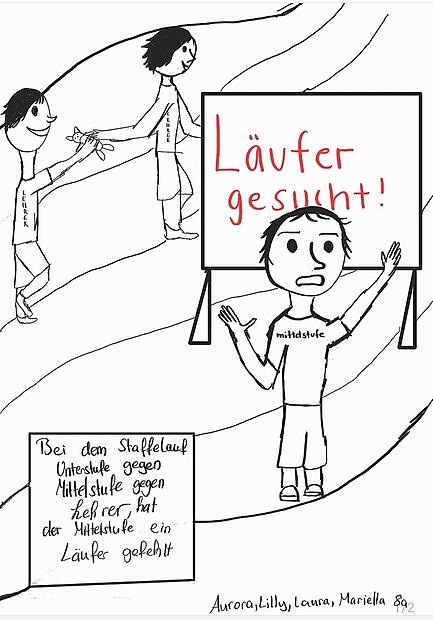 LEHRER
LEHRER
Läufer
gesucht!
mittelstufe
Bei dem Staffelauf
Unterstufe gegen
Mittelstufe gegen
Lehrer, hat
der Mittelstufe ein
Läufer gefehlt
Aurora, Lilly, Laura, Mariella 8a
1/2